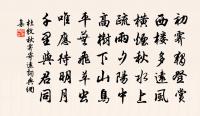 初霽獨登賞
西樓多遠風
橫煙秋水上
疏雨夕陽中
高樹下山鳥
平蕪飛草蟲
唯應待明月
千里與君同
杜牧秋霽寄遠詞典網
集